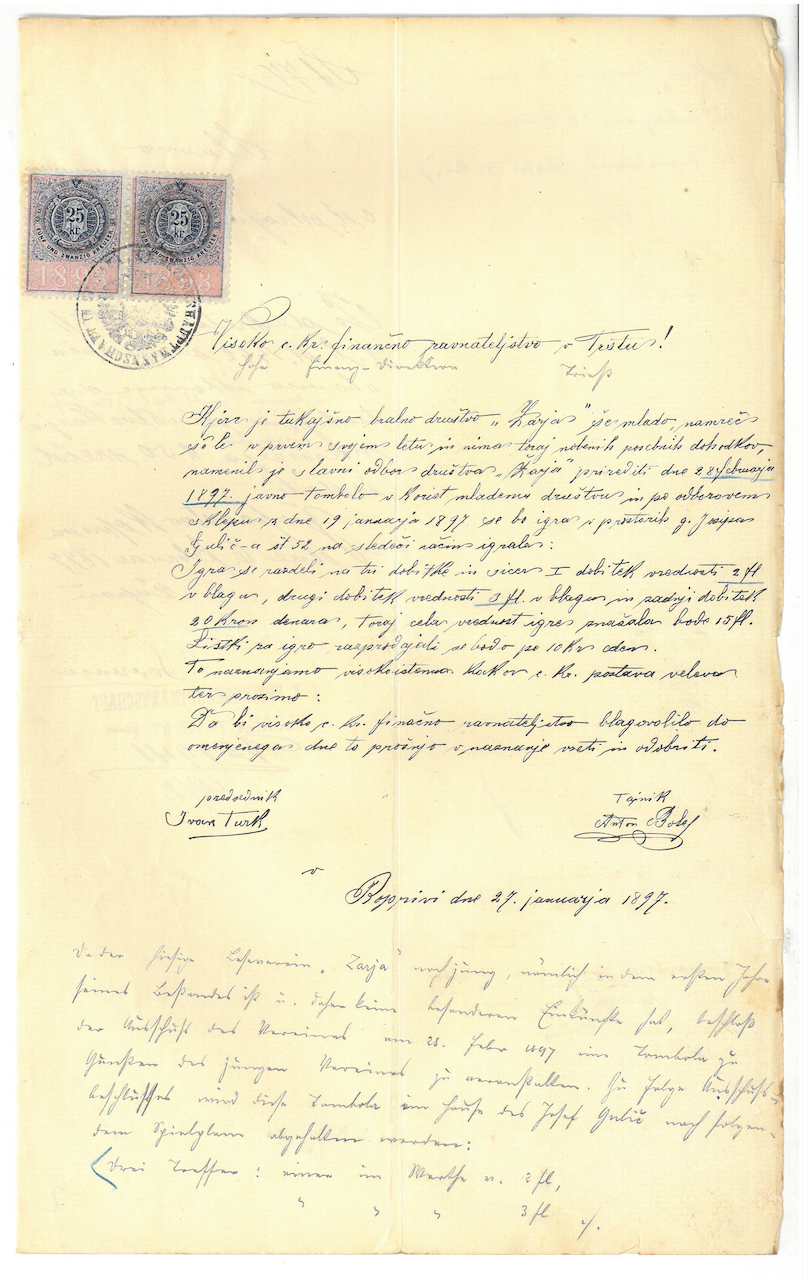 25
kr.
FÜNF UND ZWANZIG KREUZER
25
kr.
FÜNF UND ZWANZIG KREUZER
Visoko c. kr. finančno ravnateljstvo v Trstu!
Hohe Finanz-Direktion Triest
Kjer je tukajšno bralno društvo „Zarja" še mlado, namreč
še le v prvem svojem letu in nima toraj nobenih posebnih dohodkov,
namenil je slavni odbor društva „Zarja" prirediti dne 28 februarja
1897. javno tombolo v korist mlademu društvu in po odborovem
sklepu z dne 19 januarja 1897 se bo igra v prostorih g. Josipa
Gulič-a št 52 na sledeči način igrala:
Igra se razdeli na tri dobitke in sicer I dobitek vrednosti 2 fl
v blagu, drugi dobitek vrednosti 3 fl. v blagu in zadnji dobitek
20 Kron denara, toraj cela vrednost igre znašala bode 15 fl.
Listki za igro razprodajali se bodo po 10 kr eden.
To naznanjamo visokoistemu kakor c. kr. postava veleva
ter prosimo:
Da bi visoko c. kr. finačno ravnateljstvo blagovolilo do
omenjenega dne to prošnjo v naznanje vzeti in odobriti.
predsednik Tajnik
Ivan Turk Anton
v
dne 27. januarja 1897.
Da der hiesige Leseverein „Zarja" noch jung, nämlich in dem ersten Jahre
seines Bestandes ist u. daher keine besonderen Einkünfte hat, beschloß
der Ausschuß des Vereines am 28. Feber 1897 eine Tombola zu
Gunsten des jungen Vereines zu veranstalten. Zu folge Ausschuß-
beschlusses wird diese Tombola im Hause des Josef Gulič nach folgen-
dem Spielplane abgehalten werden:
Drei Treffer: einer im Werthe v. 2 fl,
" " " 3 fl ./.